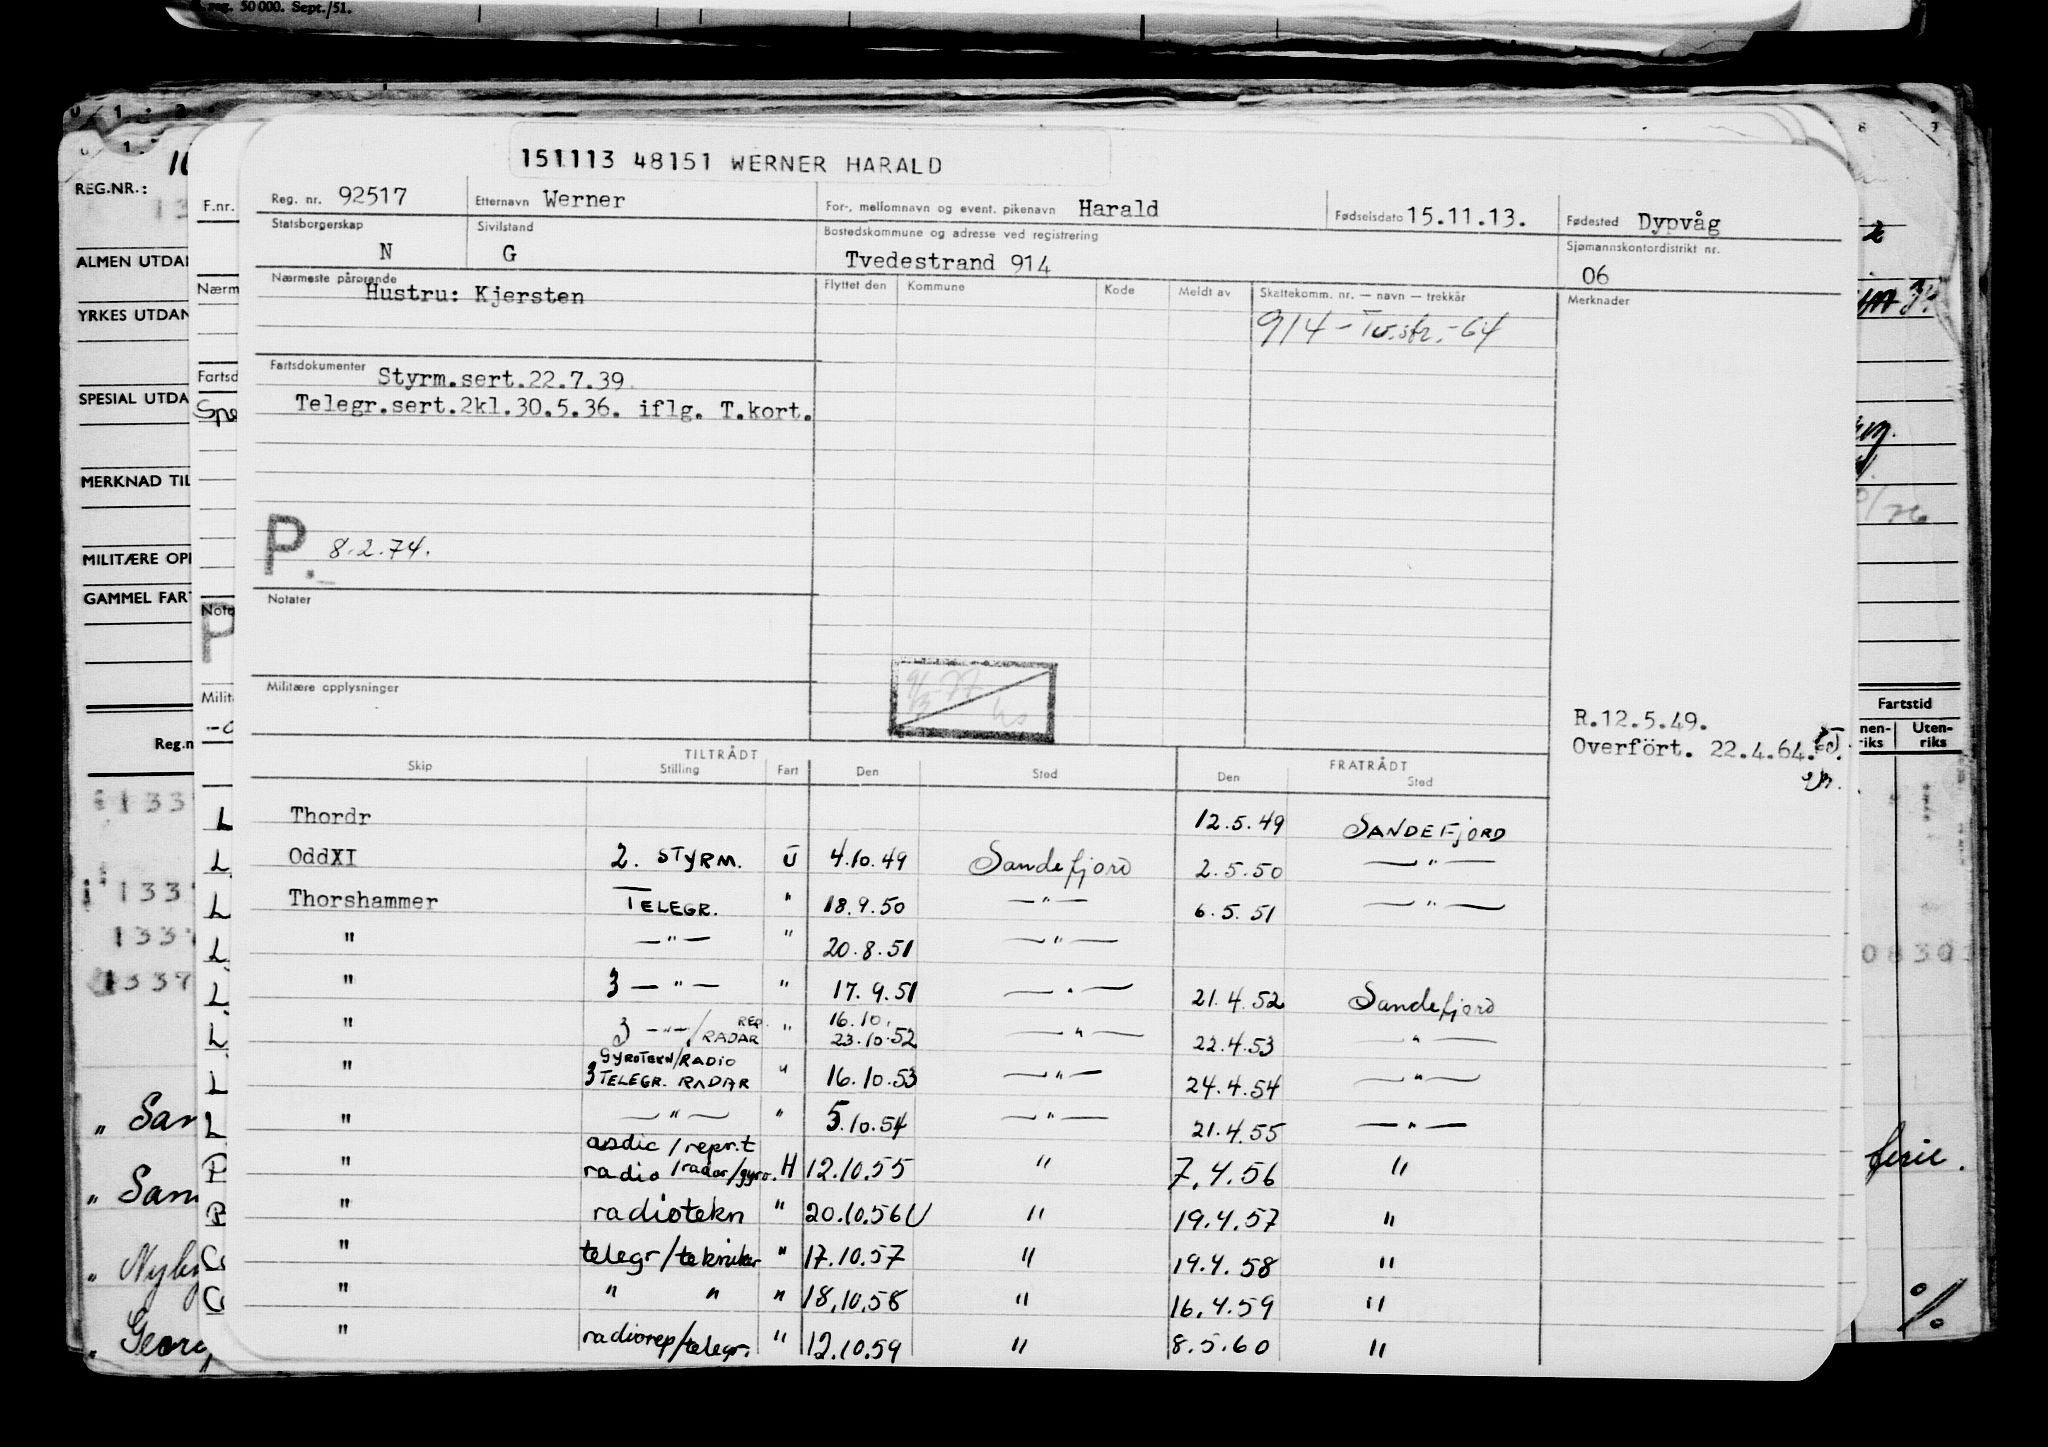 reg. 50 000. Sept./51.
REG.NR.:
ALMEN UTDA
YRKES UTDAN
SPESIAL UTDA
MERKNAD TIL
MILITÆRE OP
GAMMEL FAR
F.nr.
Nærm
Fartsd
Milit
151113 48151 WERNER HARALD
Reg. nr. 92517 Etternavn Werner For-, mellomnavn og event. pikenavn Harald Fødselsdato 15.11.13. Fødested Dypvåg
Statsborgerskap N Sivilstand G Bostedskommune og adresse ved registrering Tvedestrand 914 Sjømannskontordistrikt nr. 06
Nærmeste pårørende Hustru: Kjersten
Flyttet den Kommune Kode Meldt av Skattekomm. nr. — navn — trekkår Merknader
914 - Tv.str. - 64
Fartsdokumenter Styrm.sert.22.7.39.
Telegr.sert.2kl.30.5.36. iflg. T.kort.
P. 8.2.74.
Notater
Militære opplysninger
R.12.5.49.
Overfört. 22.4.64.
Fartstid
Uten-riks
TILTRÅDT FRATRÅDT
Skip Stilling Fart Den Sted Den Sted
L Thordr 12.5.49 SANDEFJORD
L OddXI 2. STYRM. U 4.10.49 Sandefjord 2.5.50 — " —
L Thorshammer TELEGR. " 18.9.50 — " — 6.5.51 — " —
L " — " — " 20.8.51 — " —
L " 3 — " — " 17.9.51 — " — 21.4.52 Sandefjord
L " 3 — " — / REP. RADAR " 16.10. 23.10.52 — " — 22.4.53 — " —
L " GYROTEKN/RADIO 3 TELEGR. RADAR " 16.10.53 — " — 24.4.54 — " —
L " — " — " 5.10.54 — " — 21.4.55 — " —
P " asdic / repr.t radio / radar/gyro. H 12.10.55 " 7.4.56 "
P " radiotekn " 20.10.56 U " 19.4.57 "
" telegr/tekniker " 17.10.57 " 19.4.58 "
" " " " 18.10.58 " 16.4.59 "
" radiorep/telegr. " 12.10.59 " 8.5.60 "